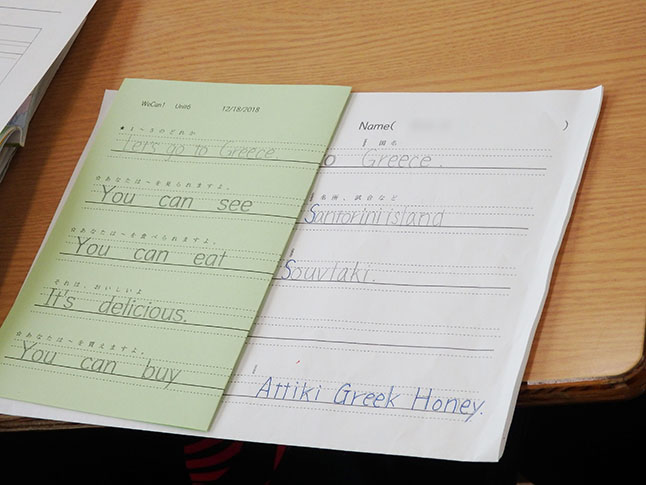 WeCan1 Unit6 12/18/2018
Name( )
★１～３のどれか 国名
Let's go to Greece o Greece.
☆あなたは～を見られますよ。 名所、試合など
You can see Santorini island
☆あなたは～を食べられますよ。
You can eat Souvlaki.
それは、おいしいよ
It's delicious.
☆あなたは～を買えますよ。
You can buy Attiki Greek Honey.